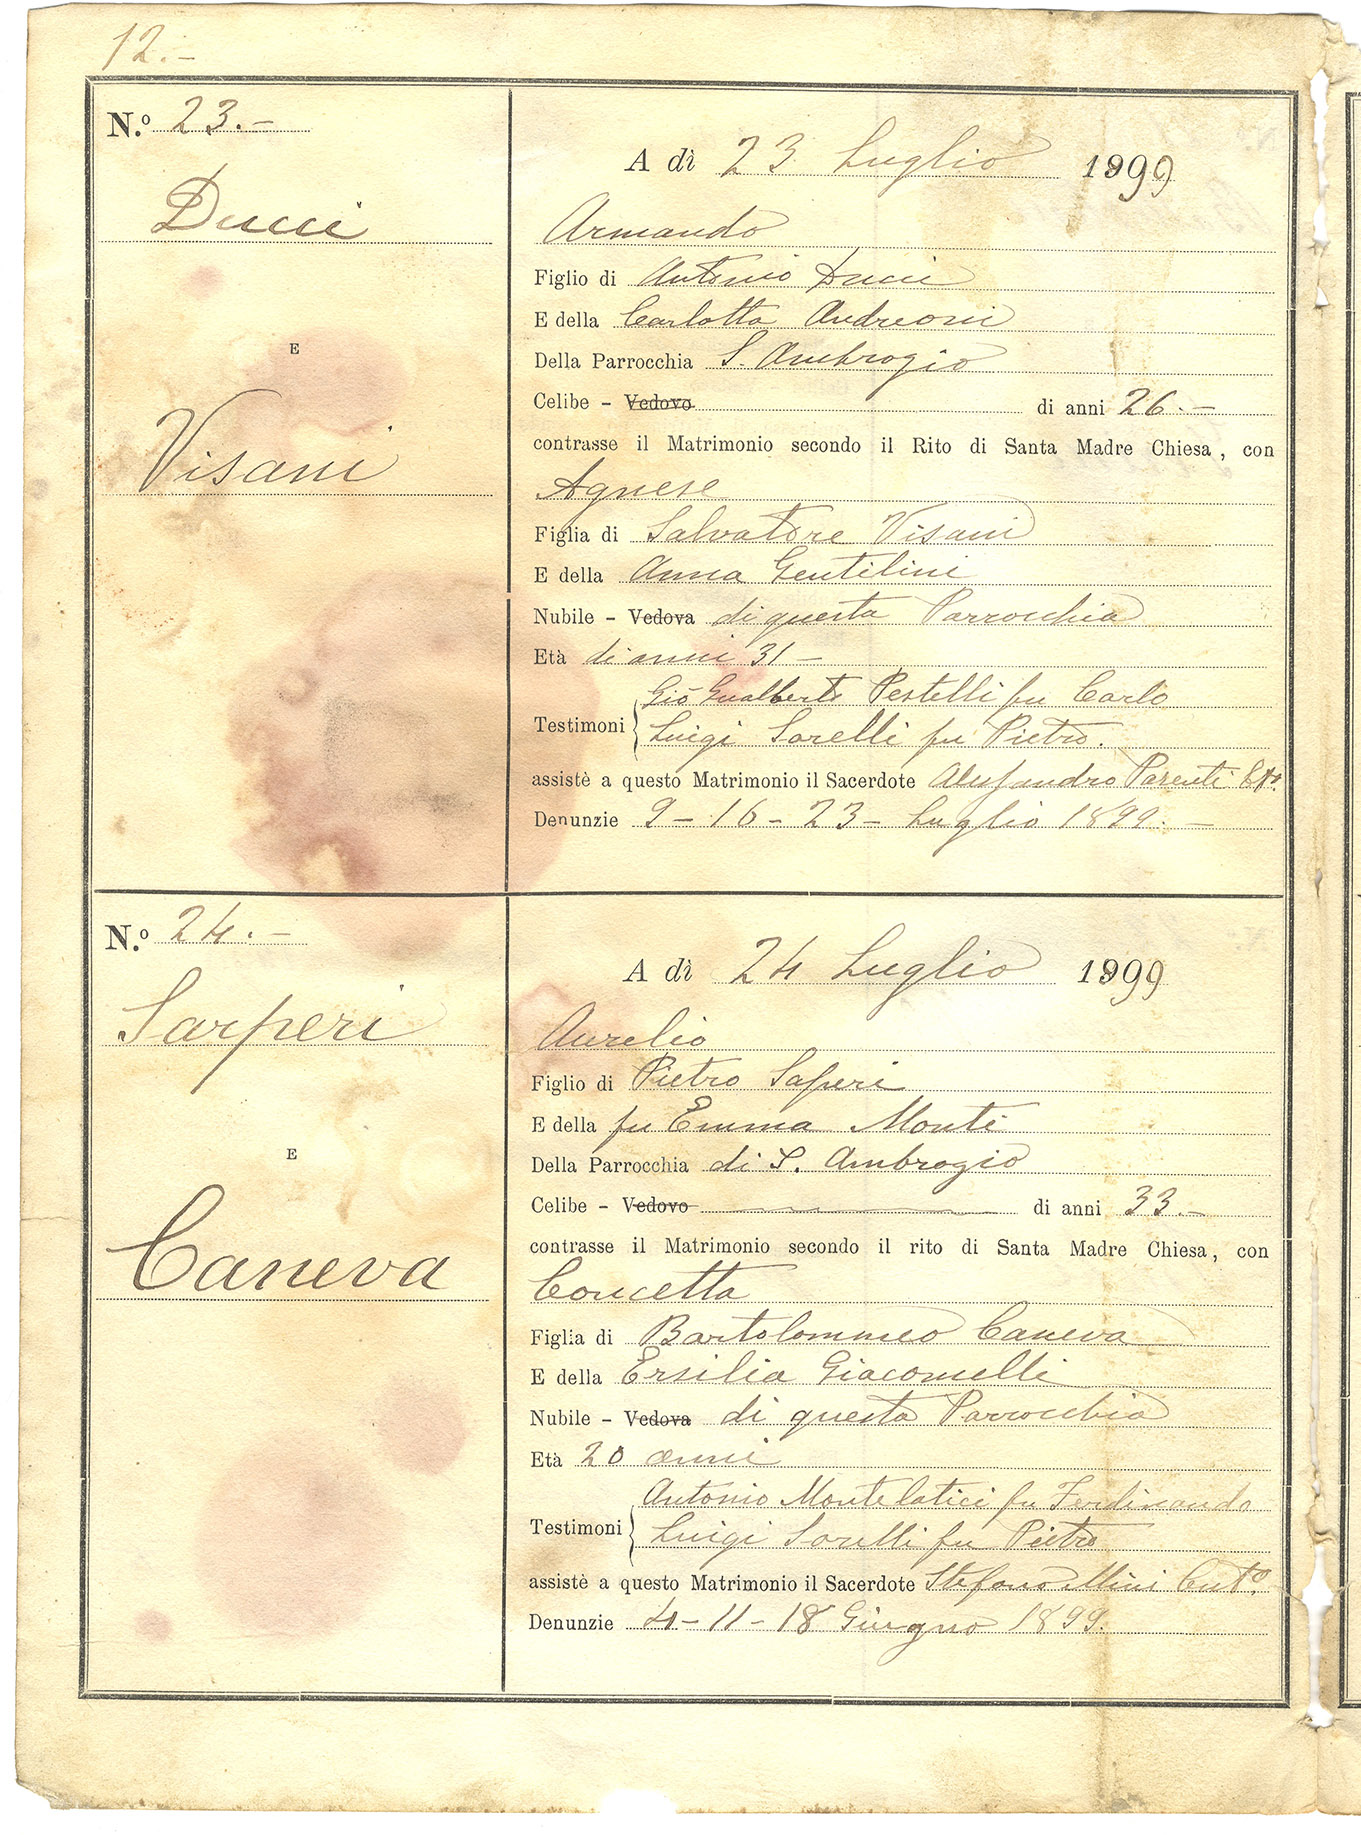 12.-
N.º 23.-
Ducci
E
Visani
A dì 23 Luglio 1899
Armando
Figlio di Antonio Ducci
E della Carlotta Andreoni
Della Parrocchia S. Ambrogio
Celibe - Vedovo di anni 26.-
contrasse il Matrimonio secondo il Rito di Santa Madre Chiesa, con
Agnese
Figlia di Salvatore Visani
E della Anna Gentilini
Nubile - Vedova di questa Parrocchia
Età di anni 31-
Gio Gualberto Pestelli fu Carlo
Testimoni
Luigi Sorelli fu Pietro.
assistè a questo Matrimonio il Sacerdote Alessandro Parenti
Denunzie 9-16-23- Luglio 1899.-
N.º 24.-
Sarperi
E
Caneva
A dì 24 Luglio 1899
Aurelio
Figlio di Pietro Saperi
E della fu Emma Monti
Della Parrocchia di S. Ambrogio
Celibe - Vedovo di anni 33.-
contrasse il Matrimonio secondo il rito di Santa Madre Chiesa, con
Concetta
Figlia di Bartolommeo Caneva
E della Ersilia Giacomelli
Nubile - Vedova di questa Parrocchia
Età 20 anni
Antonio Montelatici fu Ferdinando
Testimoni
Luigi Sorelli fu Pietro
assistè a questo Matrimonio il Sacerdote Stefano Mini Cut.º
Denunzie 4-11-18 Giugno 1899.